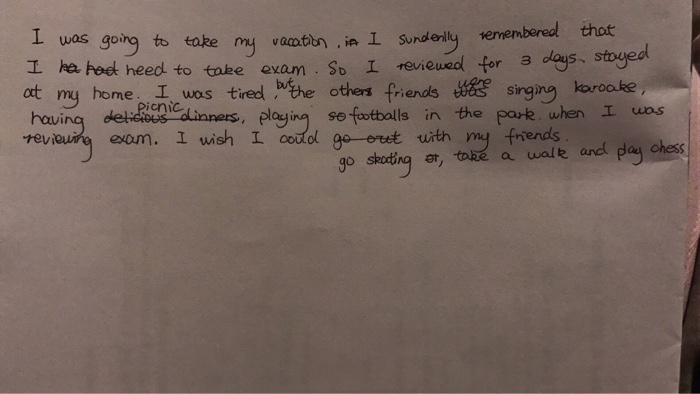 I was going to take my vacation, in I sundenlly remembered that
I ha had need to take exam. So I reviewed for 3 days, stayed
at my home. I was tired, but the others friends were singing karoake,
having delicious picnic dinners, playing so footballs in the park. when I was
reviewing exam. I wish I could go out with my friends.
go skating or, take a walk and play chess